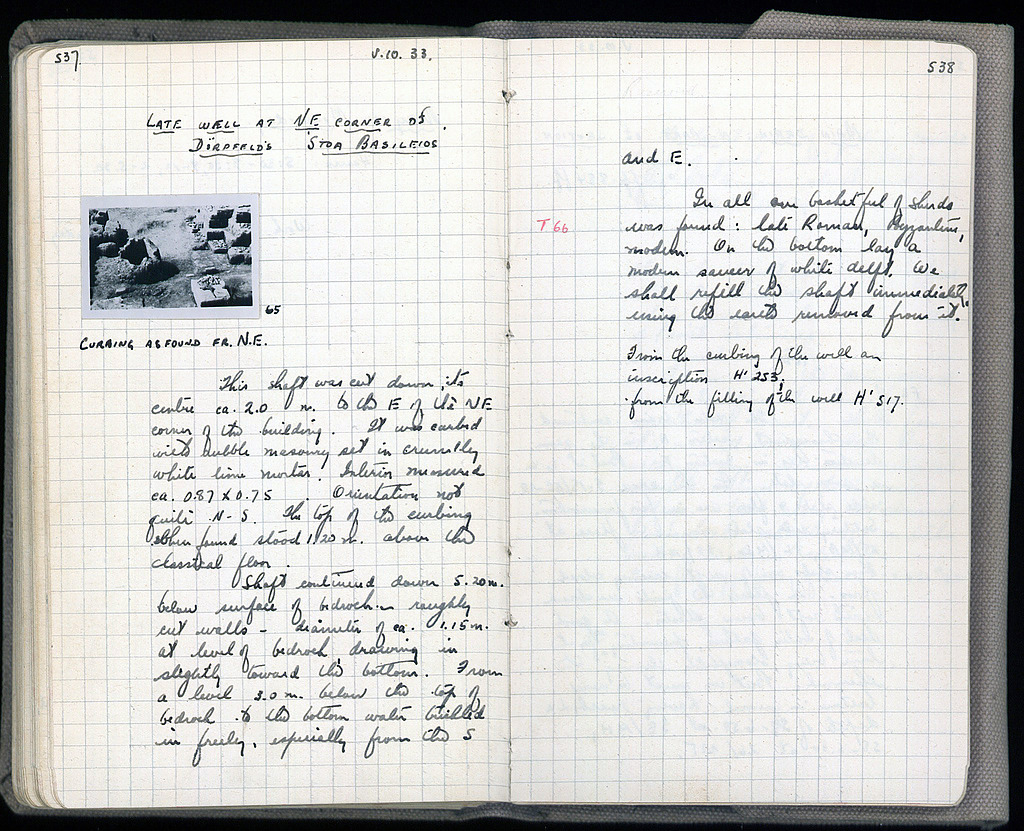 537
V.10.33.
LATE WELL AT NE CORNER OF
DÖRPFELD'S STOA BASILEIOS
65
CURBING AS FOUND FR. N.E.
This shaft was cut down, its
centre ca. 2.0 m. to the E of the NE
corner of the building. It was curbed
with rubble masonry set in crumbly
white lime mortar. Interior measured
ca. 0.87 x 0.75 . Orientation not
quite N-S. The top of the curbing
when found stood 1.20 m. above the
classical floor.
Shaft continued down 5.20 m.
below surface of bedrock in roughly
cut walls - diameter of ca. 1.15 m.
at level of bedrock, drawing in
slightly toward the bottom. From
a level 3.0 m. below the top of
bedrock to the bottom water trickled
in freely, especially from the S
538
and E.
In all one basketful of sherds
T 66
was found : late Roman, Byzantine,
modern. On the bottom lay a
modern saucer of white delft. We
shall refill the shaft immediately,
using the earth removed from it.
From the curbing of the well an
inscription H' 253;
from the filling of the well H' 517.